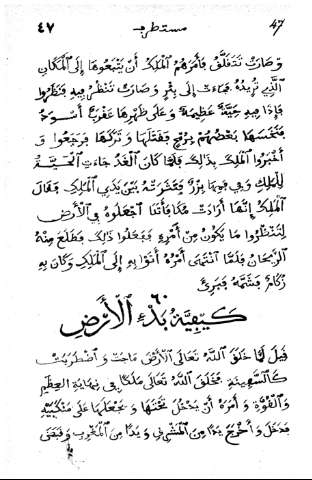 47 مستطرف ٤٧
وَصَارَتْ تَدَقْلَقُ فَأَمَرَهُمُ الْمَلِكُ أَنْ يَتْبَعُوهَا إِلَى الْمَكَانِ
الَّذِي تُرِيدُهُ فَجَاءَتْ إِلَى بِئْرٍ وَصَارَتْ تَنْظُرُ فِيهِ فَنَظَرُوا
فَإِذَا فِيهِ حَيَّةٌ عَظِيمَةٌ وَعَلَى ظَهْرِهَا عَقْرَبٌ أَسْوَدُ
فَنَخَسَهَا بَعْضُهُمْ بِرُمْحٍ فَقَتَلَهَا وَتَرَكَهَا فَرَجَعُوا وَ
أَخْبَرُوا الْمَلِكَ بِذَلِكَ فَلَمَّا كَانَ الْغَدُ جَاءَتِ الْحَيَّةُ
لِلْمَلِكِ وَفِي فِيهَا بِزْرٌ وَنَثَرَتْهُ بَيْنَ يَدَيِ الْمَلِكِ فَقَالَ
الْمَلِكُ إِنَّهَا أَرَادَتْ مُكَافَأَتَنَا اجْعَلُوهُ فِي الْأَرْضِ
لِتَنْظُرُوا مَا يَكُونُ مِنْ أَمْرِهِ فَفَعَلُوا ذَلِكَ فَطَلَعَ مِنْهُ
الرَّيْحَانُ فَلَمَّا انْتَهَى أَمْرُهُ أَتَوْا بِهِ إِلَى الْمَلِكِ وَكَانَ بِهِ
زُكَامٌ فَشَمَّهُ فَبَرِئَ
٦٠
كَيْفِيَّةُ بَدْءِ الْأَرْضِ
قِيلَ لَمَّا خَلَقَ اللَّهُ تَعَالَى الْأَرْضَ مَاجَتْ وَاضْطَرَبَتْ
كَالسَّفِينَةِ فَخَلَقَ اللَّهُ تَعَالَى مَلَكًا فِي نِهَايَةِ الْعِظَمِ
وَالْقُوَّةِ وَأَمَرَهُ أَنْ يَدْخُلَ تَحْتَهَا وَيَجْعَلَهَا عَلَى مَنْكِبَيْهِ
فَدَخَلَ وَأَخْرَجَ يَدًا مِنَ الْمَشْرِقِ وَيَدًا مِنَ الْمَغْرِبِ وَقَبَضَ